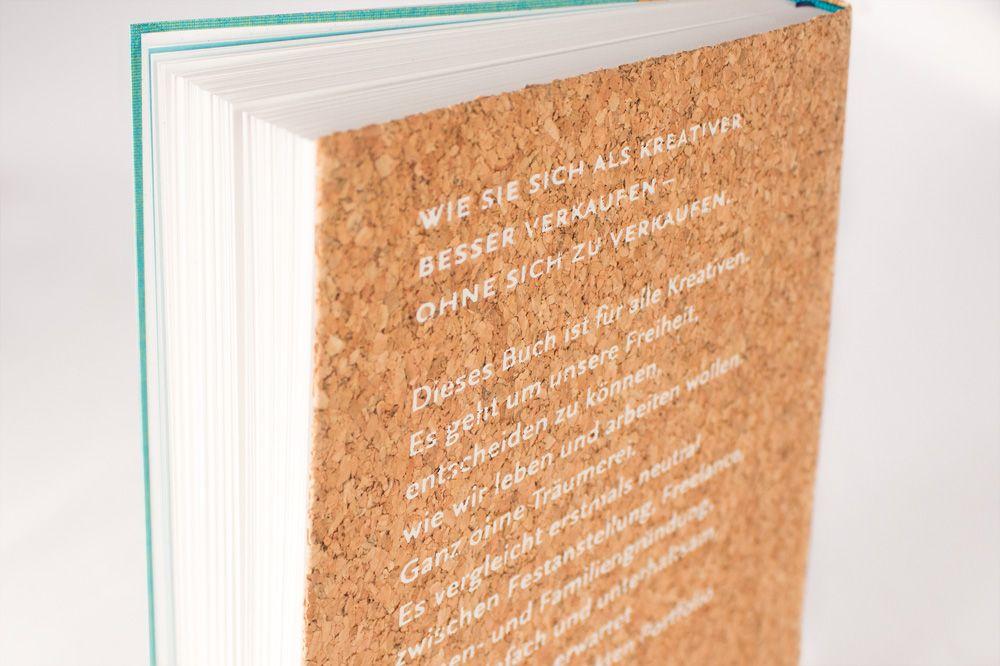 WIE SIE SICH ALS KREATIVER
BESSER VERKAUFEN –
OHNE SICH ZU VERKAUFEN.
Dieses Buch ist für alle Kreativen.
Es geht um unsere Freiheit,
entscheiden zu können,
wie wir leben und arbeiten wollen.
Ganz ohne Träumerei.
Es vergleicht erstmals neutral
zwischen Festanstellung, Freelance,
und Familiengründung,
und unterhaltsam.
erwartet
Portfolio